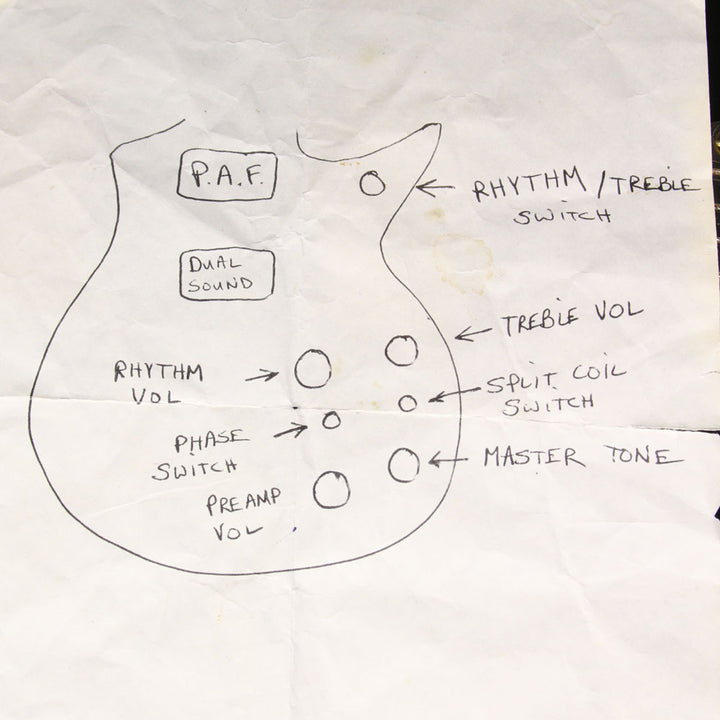 P.A.F.
RHYTHM/TREBLE
SWITCH
DUAL
SOUND
TREBLE VOL
RHYTHM
VOL
SPLIT COIL
SWITCH
PHASE
SWITCH
MASTER TONE
PREAMP
VOL